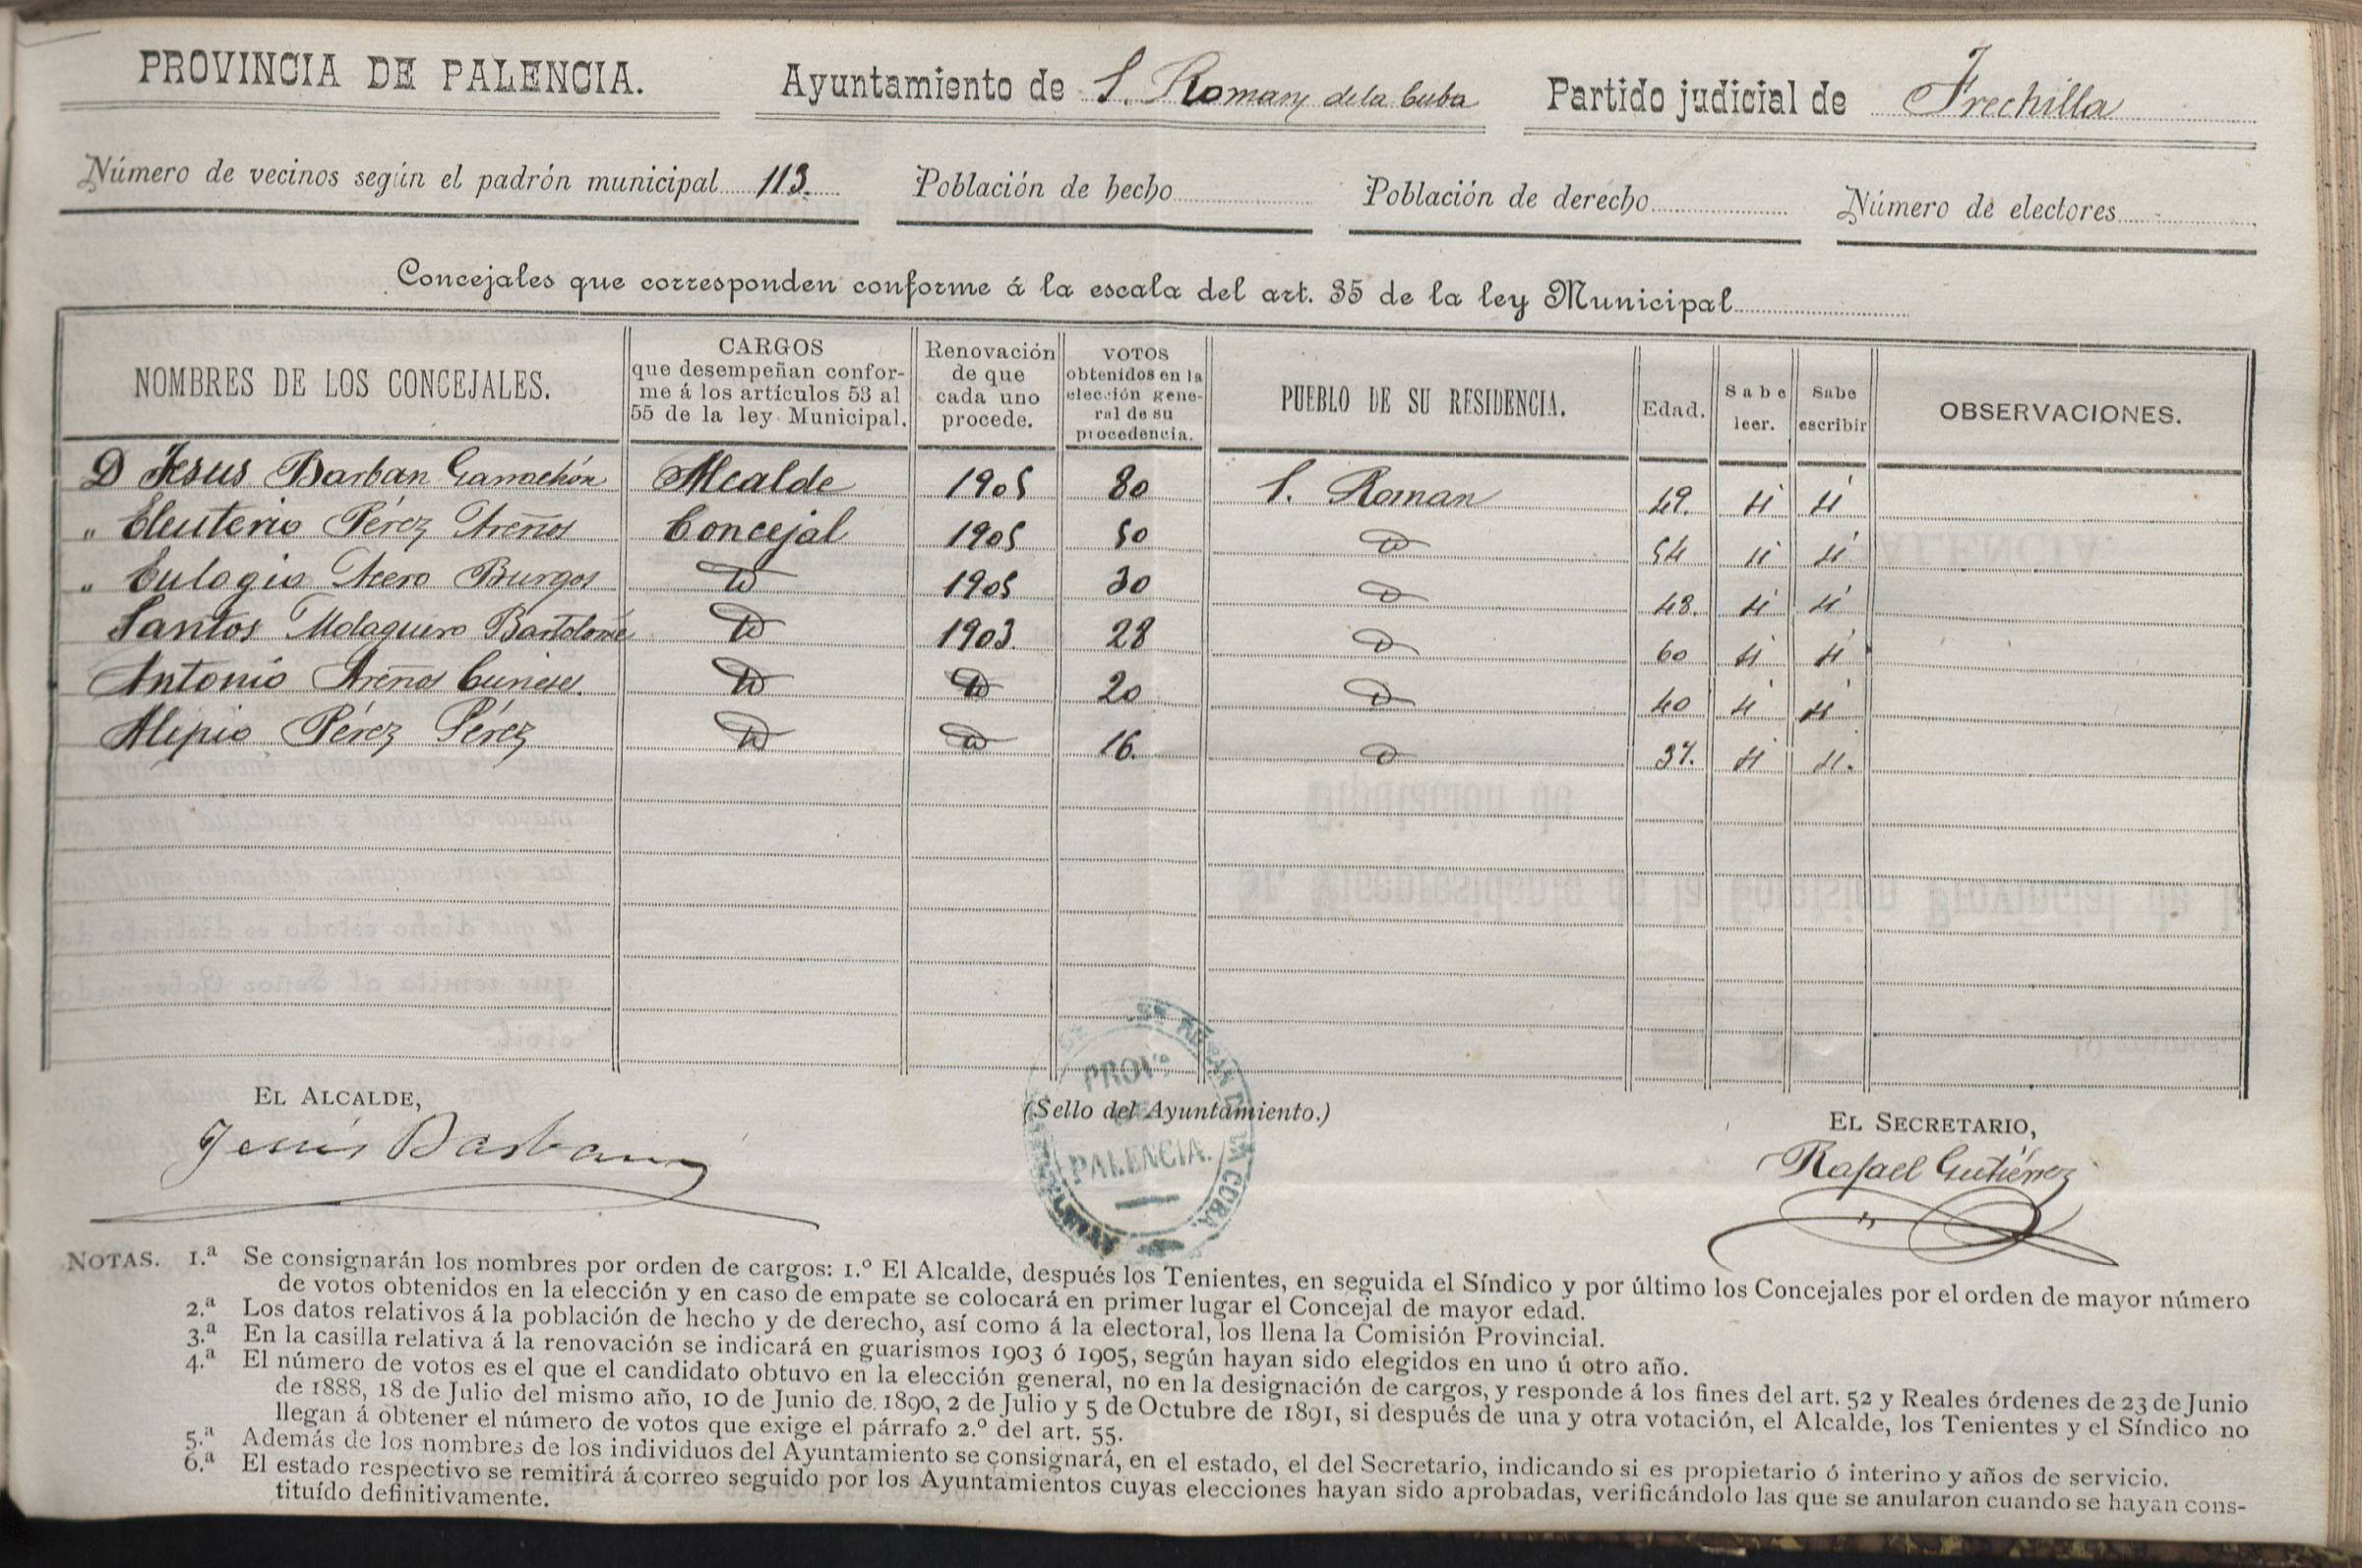 PROVINCIA DE PALENCIA. Ayuntamiento de S. Roman de la Cuba Partido judicial de Frechilla
Número de vecinos según el padrón municipal 113. Población de hecho Población de derecho Número de electores
Concejales que corresponden conforme á la escala del art. 35 de la ley Municipal
NOMBRES DE LOS CONCEJALES.
CARGOS
que desempeñan confor-
me á los artículos 53 al
55 de la ley Municipal.
Renovación
de que
cada uno
procede.
VOTOS
obtenidos en la
elección gene-
ral de su
procedencia.
PUEBLO DE SU RESIDENCIA.
Edad.
Sabe
leer.
Sabe
escribir
OBSERVACIONES.
D Jesus Barban Garrachón Alcalde 1905 80 S. Roman 49. si si
" Eleuterio Pérez Areños Concejal 1905 50 D 54 si si
" Eulogio Acero Burgos D 1905 30 D 48. si si
Santos Molaguero Bartolomé D 1903. 28 D 60 si si
Antonio Areños D D 20 D 40 si si
Alipio Pérez Pérez D D 16. D 37. si si.
EL ALCALDE,
Jesús Barban
(Sello del Ayuntamiento.)
PROVª
DE
PALENCIA.
EL SECRETARIO,
Rafael Gutiérrez
NOTAS. 1.ª Se consignarán los nombres por orden de cargos: 1.º El Alcalde, después los Tenientes, en seguida el Síndico y por último los Concejales por el orden de mayor número
de votos obtenidos en la elección y en caso de empate se colocará en primer lugar el Concejal de mayor edad.
2.ª Los datos relativos á la población de hecho y de derecho, así como á la electoral, los llena la Comisión Provincial.
3.ª En la casilla relativa á la renovación se indicará en guarismos 1903 ó 1905, según hayan sido elegidos en uno ú otro año.
4.ª El número de votos es el que el candidato obtuvo en la elección general, no en la designación de cargos, y responde á los fines del art. 52 y Reales órdenes de 23 de Junio
de 1888, 18 de Julio del mismo año, 10 de Junio de 1890, 2 de Julio y 5 de Octubre de 1891, si después de una y otra votación, el Alcalde, los Tenientes y el Síndico no
llegan á obtener el número de votos que exige el párrafo 2.º del art. 55.
5.ª Además de los nombres de los individuos del Ayuntamiento se consignará, en el estado, el del Secretario, indicando si es propietario ó interino y años de servicio.
6.ª El estado respectivo se remitirá á correo seguido por los Ayuntamientos cuyas elecciones hayan sido aprobadas, verificándolo las que se anularon cuando se hayan cons-
tituído definitivamente.